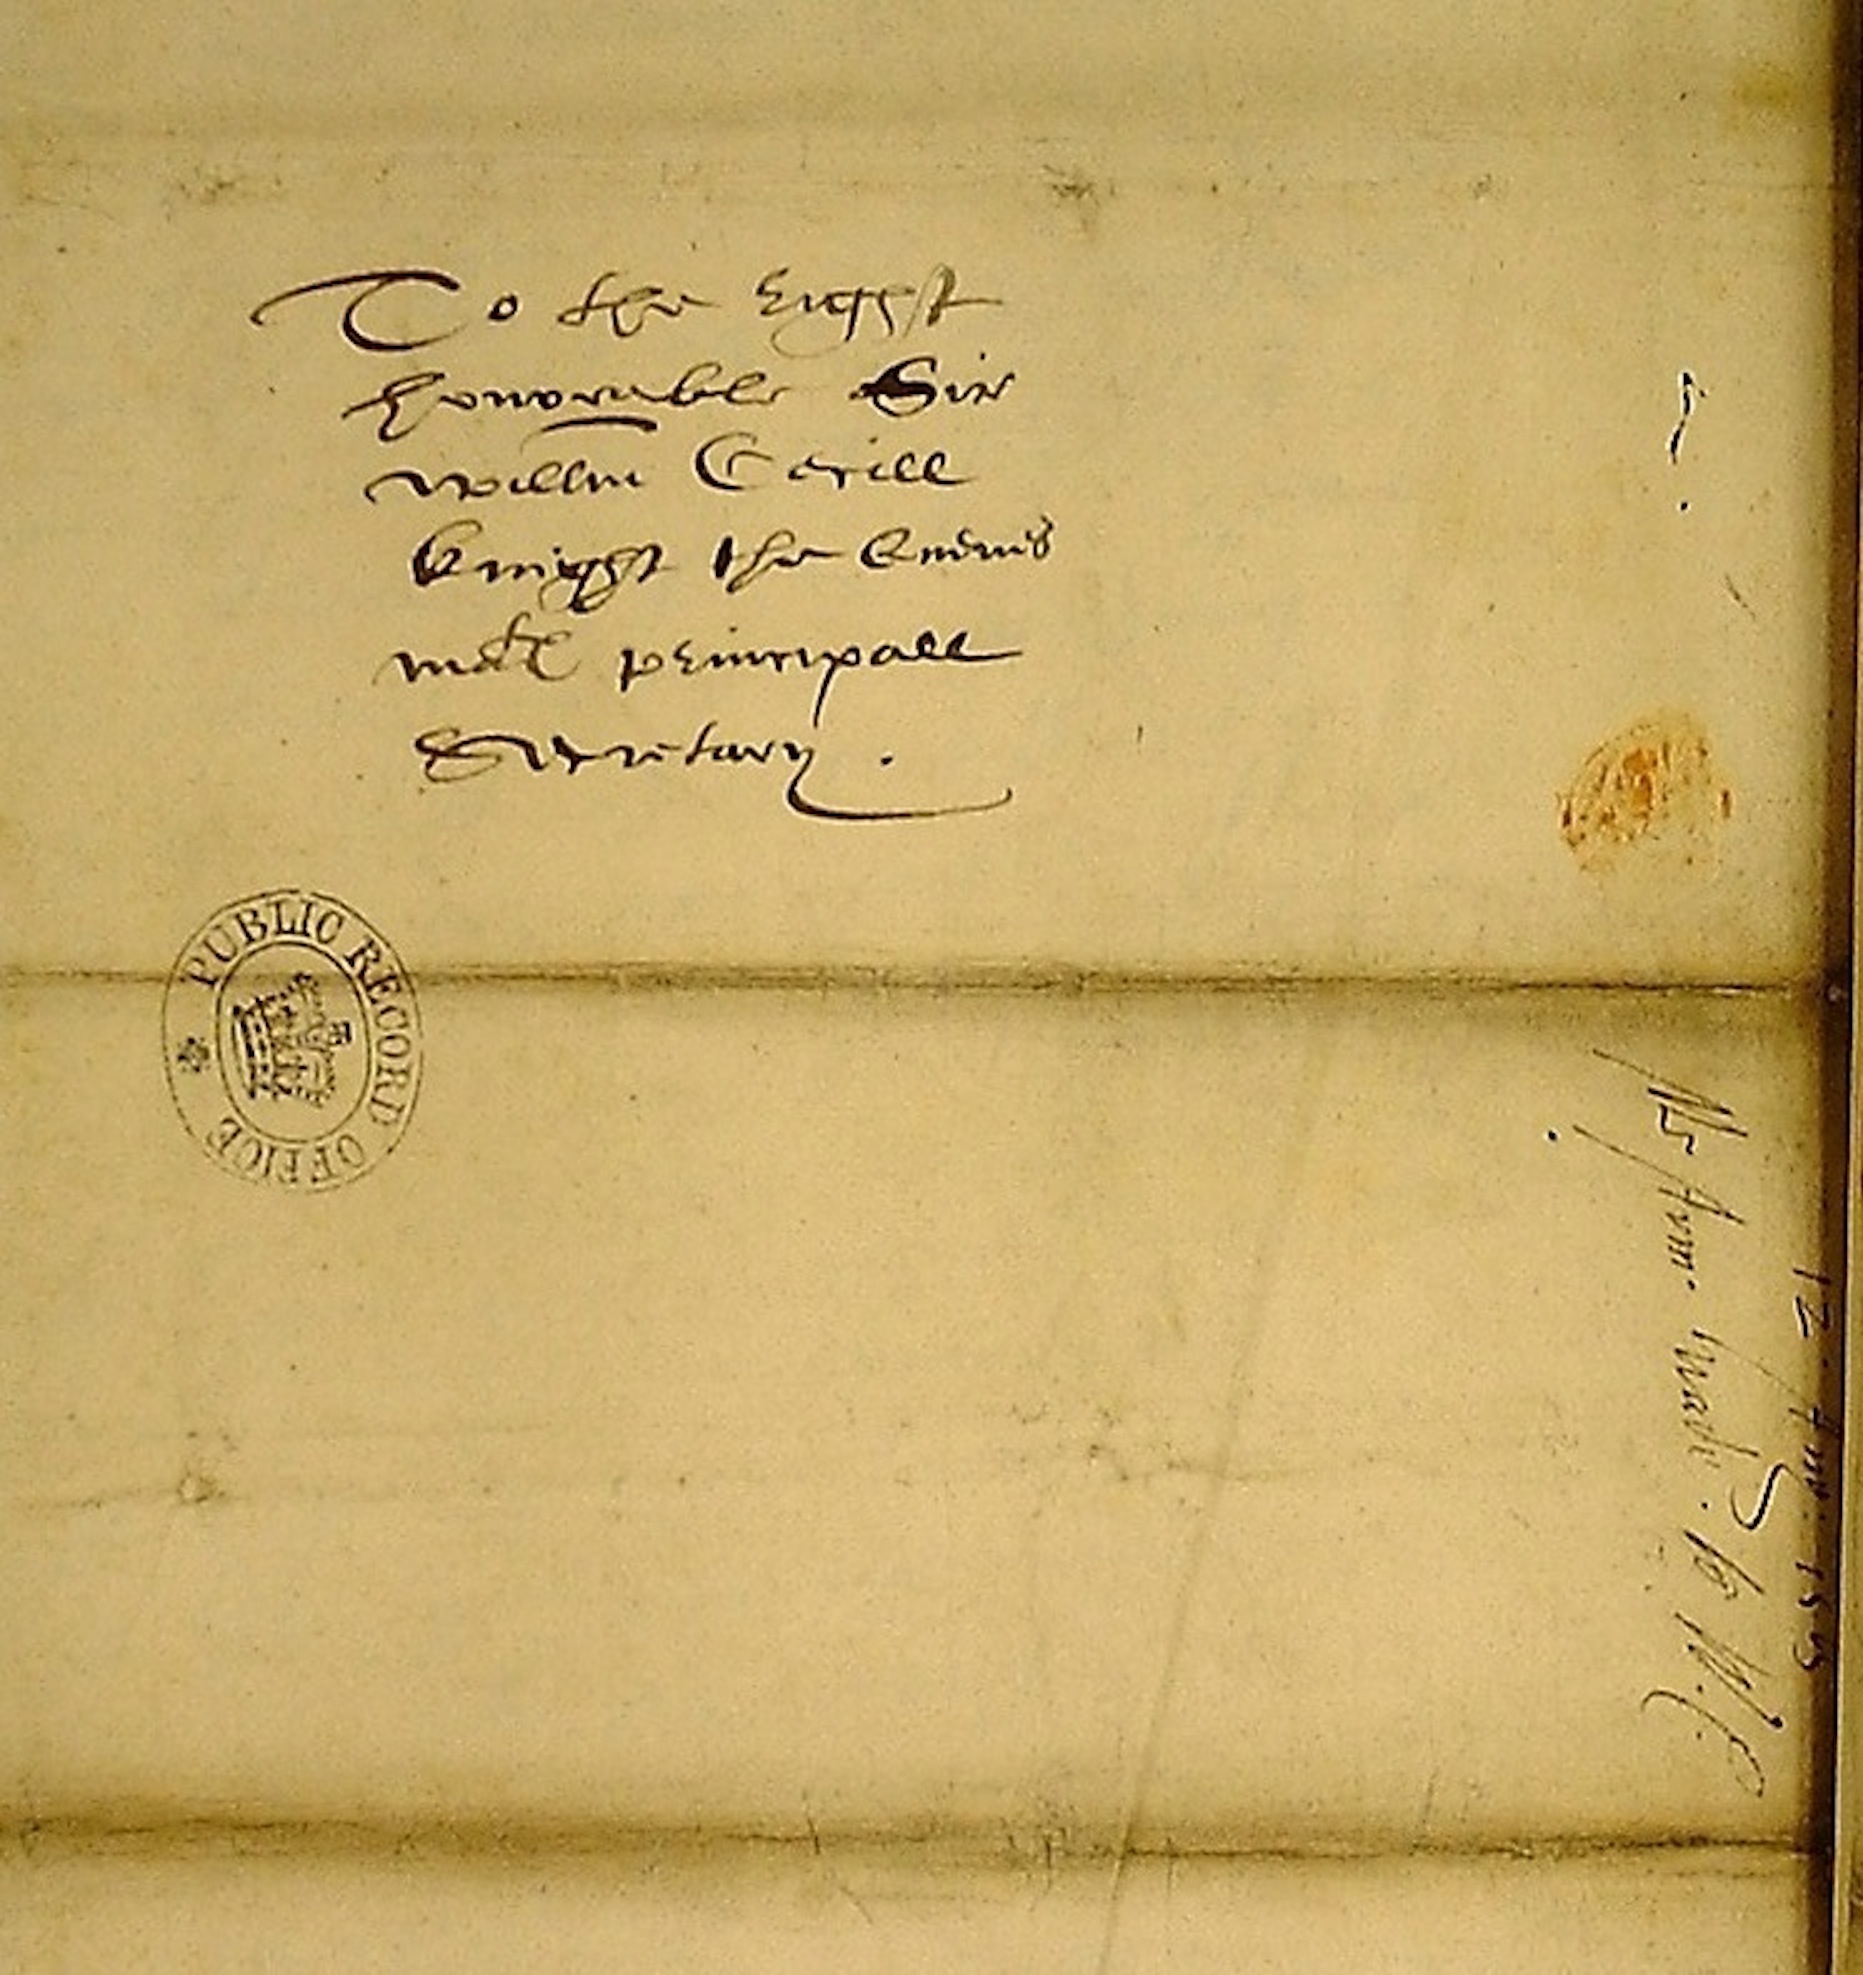 To the right
honorable Sir
Willm Cecill
knight the Quenes
mate principall
Secretary.
PUBLIC RECORD OFFICE
12
Mr
to W. C.